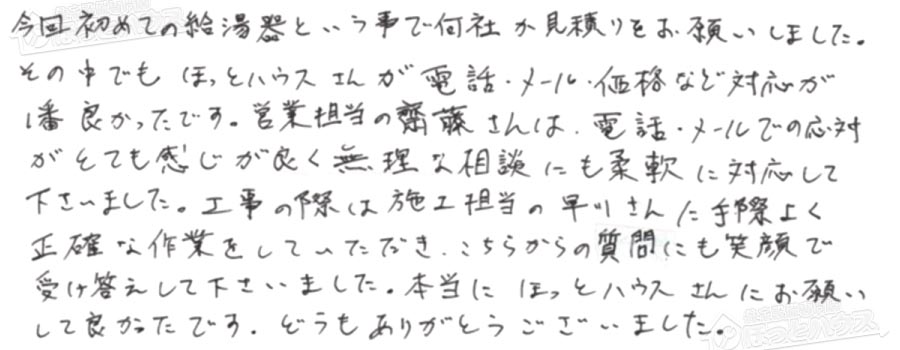 今回初めての給湯器という事で何社か見積りをお願いしました。
その中でもほっとハウスさんが電話・メール・価格など対応が
1番良かったです。営業担当の齋藤さんは、電話・メールでの応対
がとても感じが良く無理な相談にも柔軟に対応して
下さいました。工事の際は施工担当の早川さんに手際よく
正確な作業をしていただき、こちらからの質問にも笑顔で
受け答えして下さいました。本当にほっとハウスさんにお願い
して良かったです。どうもありがとうございました。
ほっとハウス